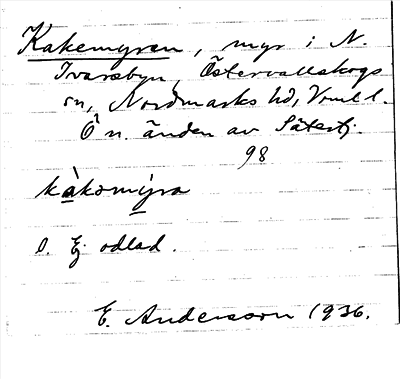 Kakemyren, myr i N.
Ivarsbyn, Östervallskogs
sn, Nordmarks hd, Vrml l.
Ö n. änden av Sätertj.
98
kàkamýra
O. Ej odlad.
E. Andersson 1936.